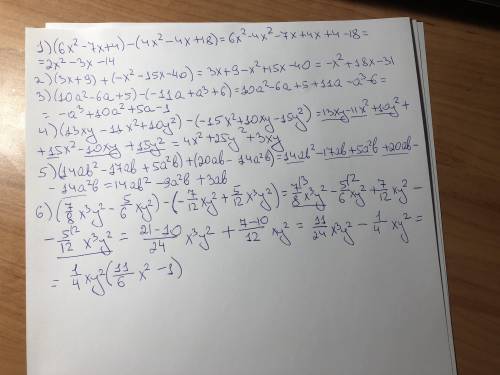 1) (6x² - 7x + 4) - (4x² - 4x + 18) = 6x² - 4x² - 7x + 4x + 4 - 18 =
= 2x² - 3x - 14
2) (3x + 9) + (-x² - 15x - 40) = 3x + 9 - x² + 15x - 40 = -x² + 18x - 31
3) (10a² - 6a + 5) - (-11a + a³ + 6) = 10a² - 6a + 5 + 11a - a³ - 6 =
= -a³ + 10a² + 5a - 1
4) (13xy - 11x² + 10y²) - (-15x² + 10xy - 15y²) = 13xy - 11x² + 10y² +
+ 15x² - 10xy + 15y² = 4x² + 25y² + 3xy
5) (14ab² - 17ab + 5a²b) + (20ab - 14a²b) = 14ab² - 17ab + 5a²b + 20ab -
- 14a²b = 14ab² - 9a²b + 3ab
6) (7/8 x³y² - 5/6 xy²) - (-7/12 xy² + 5/12 x³y²) = 7\3/8 x³y² - 5\2/6 xy² + 7/12 xy² -
- 5\2/12 x³y² = 21-10/24 x³y² + 7-10/12 xy² = 11/24 x³y² - 1/4 xy² =
= 1/4 xy² (11/6 x² - 1)